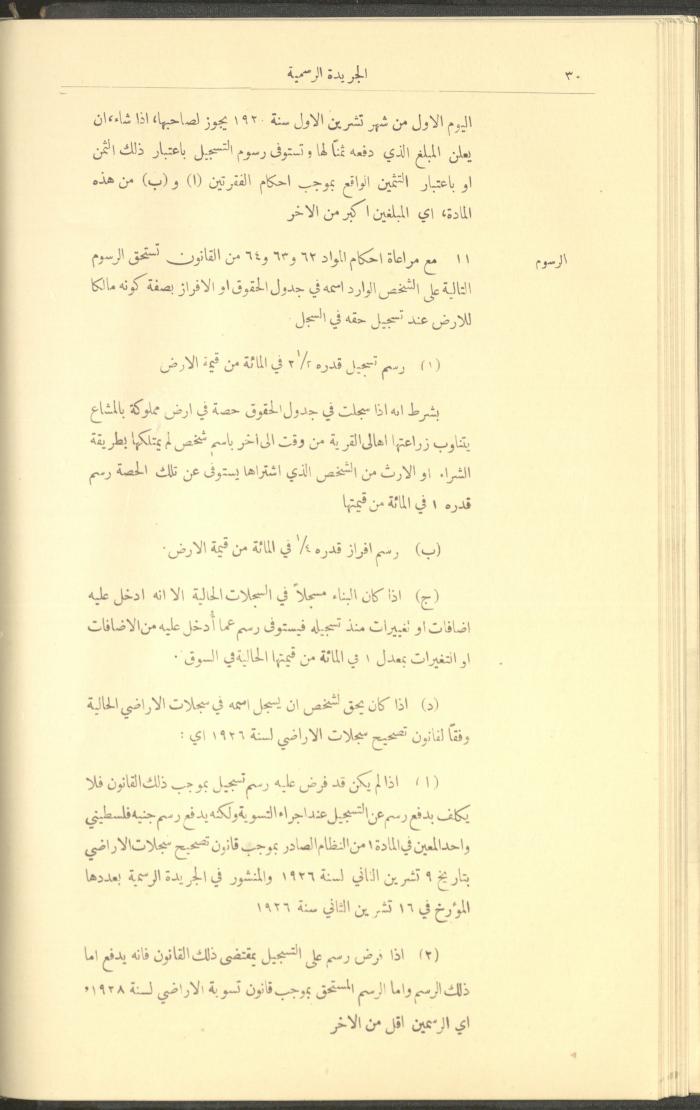 ٣٠
الجريدة الرسمية
اليوم الاول من شهر تشرين الاول سنة ١٩٢٠ يجوز لصاحبها، اذا شاء، ان
يعلن المبلغ الذي دفعه ثمنًا لها وتستوفى رسوم التسجيل باعتبار ذلك الثمن
او باعتبار التثمين الواقع بموجب احكام الفقرتين (ا) و (ب) من هذه
المادة، اي المبلغين اكبر من الاخر
الرسوم
١١ مع مراعاة احكام المواد ٦٢ و٦٣ و٦٤ من القانون تستحق الرسوم
التالية على الشخص الوارد اسمه في جدول الحقوق او الافراز بصفة كونه مالكا
للارض عند تسجيل حقه في السجل
(ا) رسم تسجيل قدره ٢١/٢ في المائة من قيمة الارض
بشرط انه اذا سجلت في جدول الحقوق حصة في ارض مملوكة بالمشاع
يتناوب زراعتها اهالى القرية من وقت الى اخر باسم شخص لم يمتلكها بطريقة
الشراء او الارث من الشخص الذي اشتراها يستوفى عن تلك الحصة رسم
قدره ١ في المائة من قيمتها
(ب) رسم افراز قدره ١/٤ في المائة من قيمة الارض.
(ج) اذا كان البناء مسجلاً في السجلات الحالية الا انه ادخل عليه
اضافات او تغييرات منذ تسجيله فيستوفى رسم عما أُدخل عليه من الاضافات
او التغيرات بمعدل ١ في المائة من قيمتها الحالية في السوق.
(د) اذا كان يحق لشخص ان يسجل اسمه في سجلات الاراضي الحالية
وفقًا لقانون تصحيح سجلات الاراضي لسنة ١٩٢٦ اي :
(١) اذا لم يكن قد فرض عليه رسم تسجيل بموجب ذلك القانون فلا
يكلف بدفع رسم عن التسجيل عند اجراء التسوية ولكنه يدفع رسم جنيه فلسطيني
واحد المعين في المادة ١ من النظام الصادر بموجب قانون تصحيح سجلات الاراضي
بتاريخ ٩ تشرين الثاني لسنة ١٩٢٦ والمنشور في الجريدة الرسمية بعددها
المؤرخ في ١٦ تشرين الثاني سنة ١٩٢٦
(٢) اذا فرض رسم على التسجيل بمقتضى ذلك القانون فانه يدفع اما
ذلك الرسم واما الرسم المستحق بموجب قانون تسوية الاراضي لسنة ١٩٢٨،
اي الرسمين اقل من الاخر